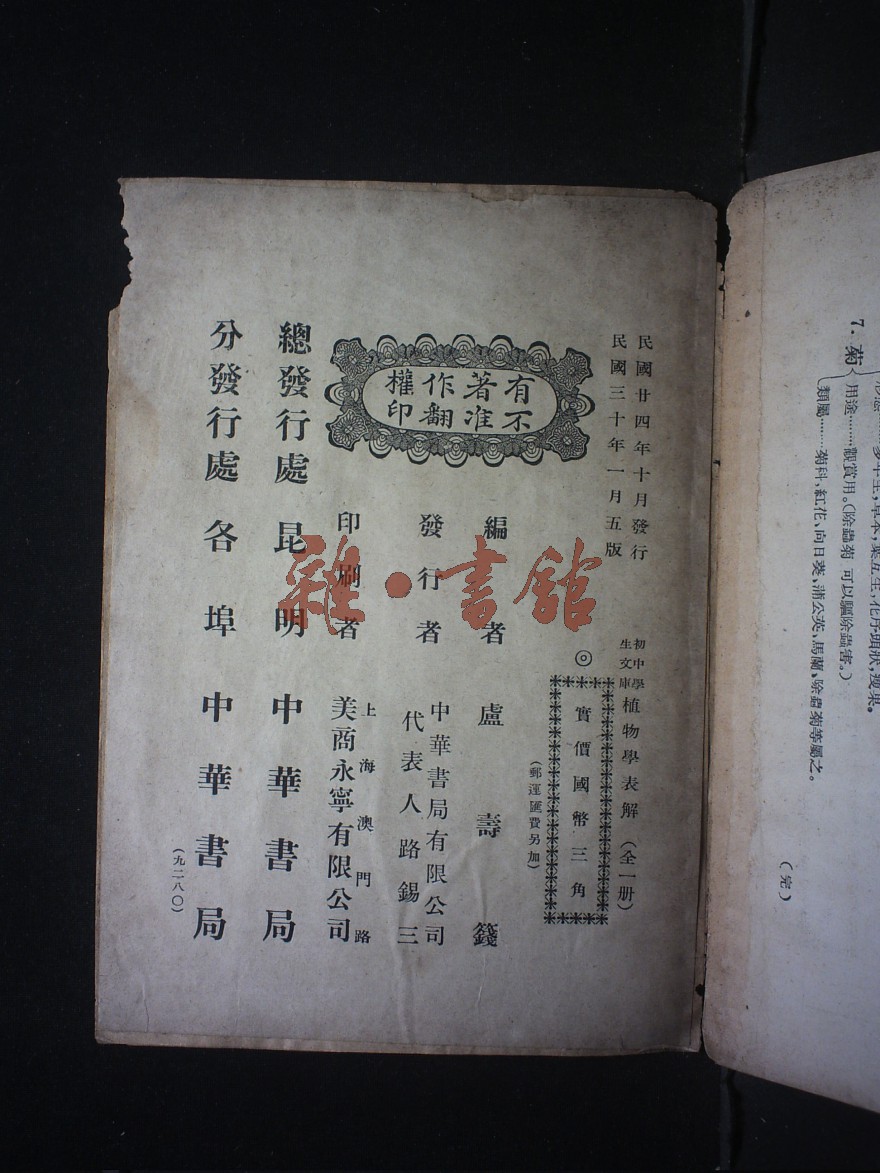 民國廿四年十月發行
民國三十年一月五版
初中學生文庫
植物學表解（全一册）
◎
實價國幣三角
（郵運匯費另加）
有著作權
不准翻印
編者 盧壽籛
發行者 中華書局有限公司
代表人路錫三
印刷者 上海澳門路
美商永寧有限公司
總發行處 昆明 中華書局
分發行處 各埠 中華書局
（九二八〇）
雜·書館
多年生，草本，葉互生，花序頭狀，瘦果。
7．菊 用途………觀賞用。（除蟲菊 可以驅除蟲害。）
類屬………菊科，紅花、向日葵、蒲公英、馬蘭、除蟲菊等屬之。
（完）